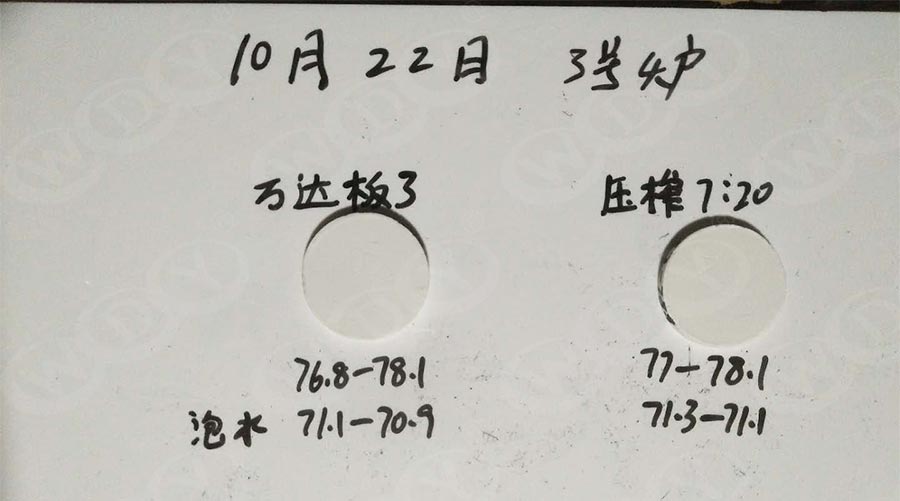 10月22日 3号炉
万达板3 压榨7:20
76.8-78.1 77-78.1
泡水 71.1-70.9 71.3-71.1